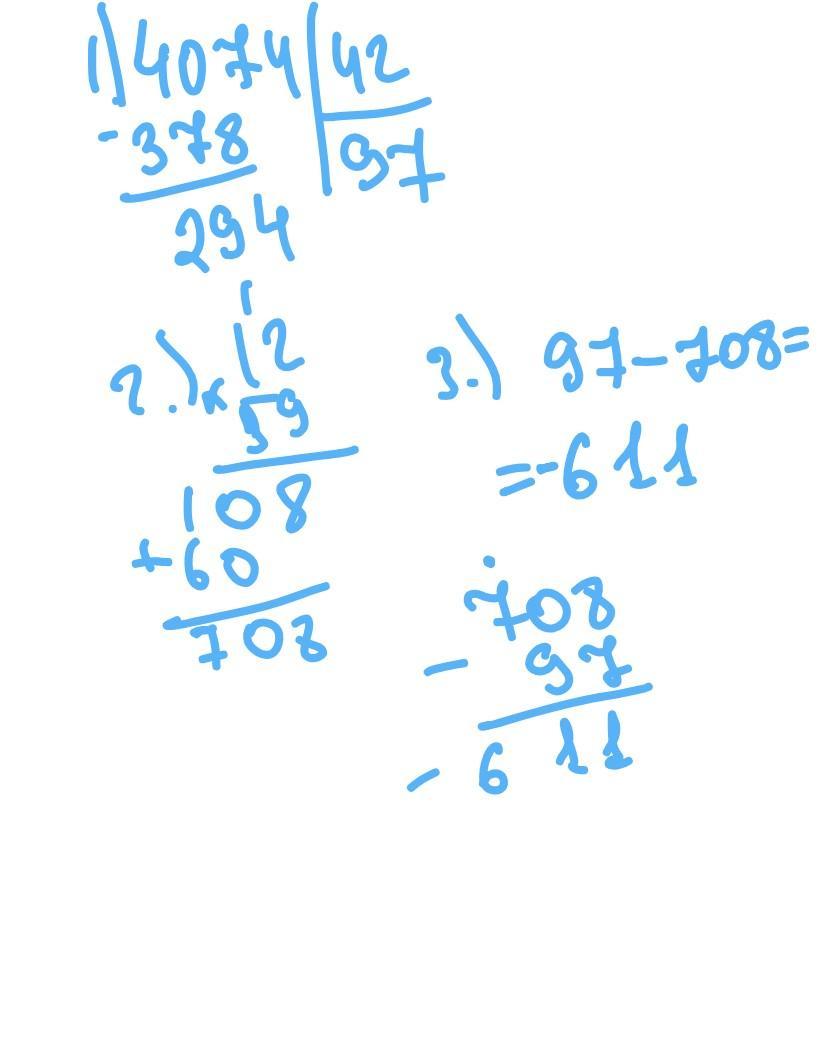 1) 4074 | 42
- 378 | 97
294
2.) 1
12
× 59
108
+ 60
708
3.) 97 - 708 =
= -611
708
- 97
- 611